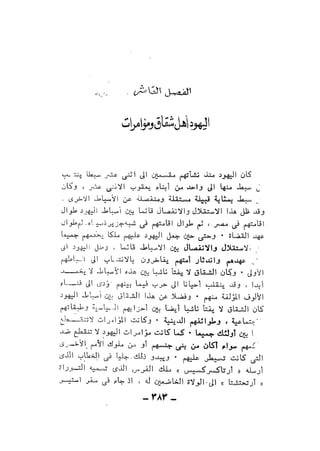 الفصل التاسع
اليهود أهل شقاق ومؤامرات
كان اليهود منذ نشأتهم مقسمين الى اثنى عشر سبطا ينتسب
سبط منها الى واحد من أبناء يعقوب الاثنى عشر ، وكان
سبط بمثابة قبيلة مستقلة ومنفصلة عن الأسباط الاخرى .
وقد ظل هذا الاستقلال والانفصال قائما بين أسباط اليهود طوال
اقامتهم فى مصر ، ثم طوال اقامتهم فى شبه جزيرة سيناء ، ثم طوال
عهد القضاة . وحتى حين جعل اليهود عليهم ملكا يحكمهم جميعا
الاستقلال والانفصال بين الاسباط قائما . وظل اليهود الى
عهدهم واندثار أمتهم يفاخرون بالانتساب الى أسباطهم
الأولى . وكان الشقاق لا يفتأ ناشبا بين هذه الأسباط لا يخمد
أبدا ، وقد ينقلب أحيانا الى حرب فيما بينهم تؤدى الى فناء
الألوف المؤلفة منهم . وفضلا عن هذا الشقاق بين أسباط اليهود
كان الشقاق لا يفتأ ناشبا أيضا بين أحزابهم السياسية وطبقاتهم
الاجتماعية ، وطوائفهم الدينية . وكانت المؤامرات لا تنقطع
بين أولئك جميعا . كما كانت مؤامرات اليهود لا تنقطع ضد
سواء أكان من بنى جنسهم أو من ملوك الأمم الأخرى
التى كانت تسيطر عليهم . ويبدو ذلك جليا فى الخطاب الذى
أرسله « أرتاكسركسيس » ملك الفرس الذى تسميه التوراة
« أرتحشتا » الى الولاة الخاضعين له ، اذ جاء فى سفر استير
- ٣٨٣ -